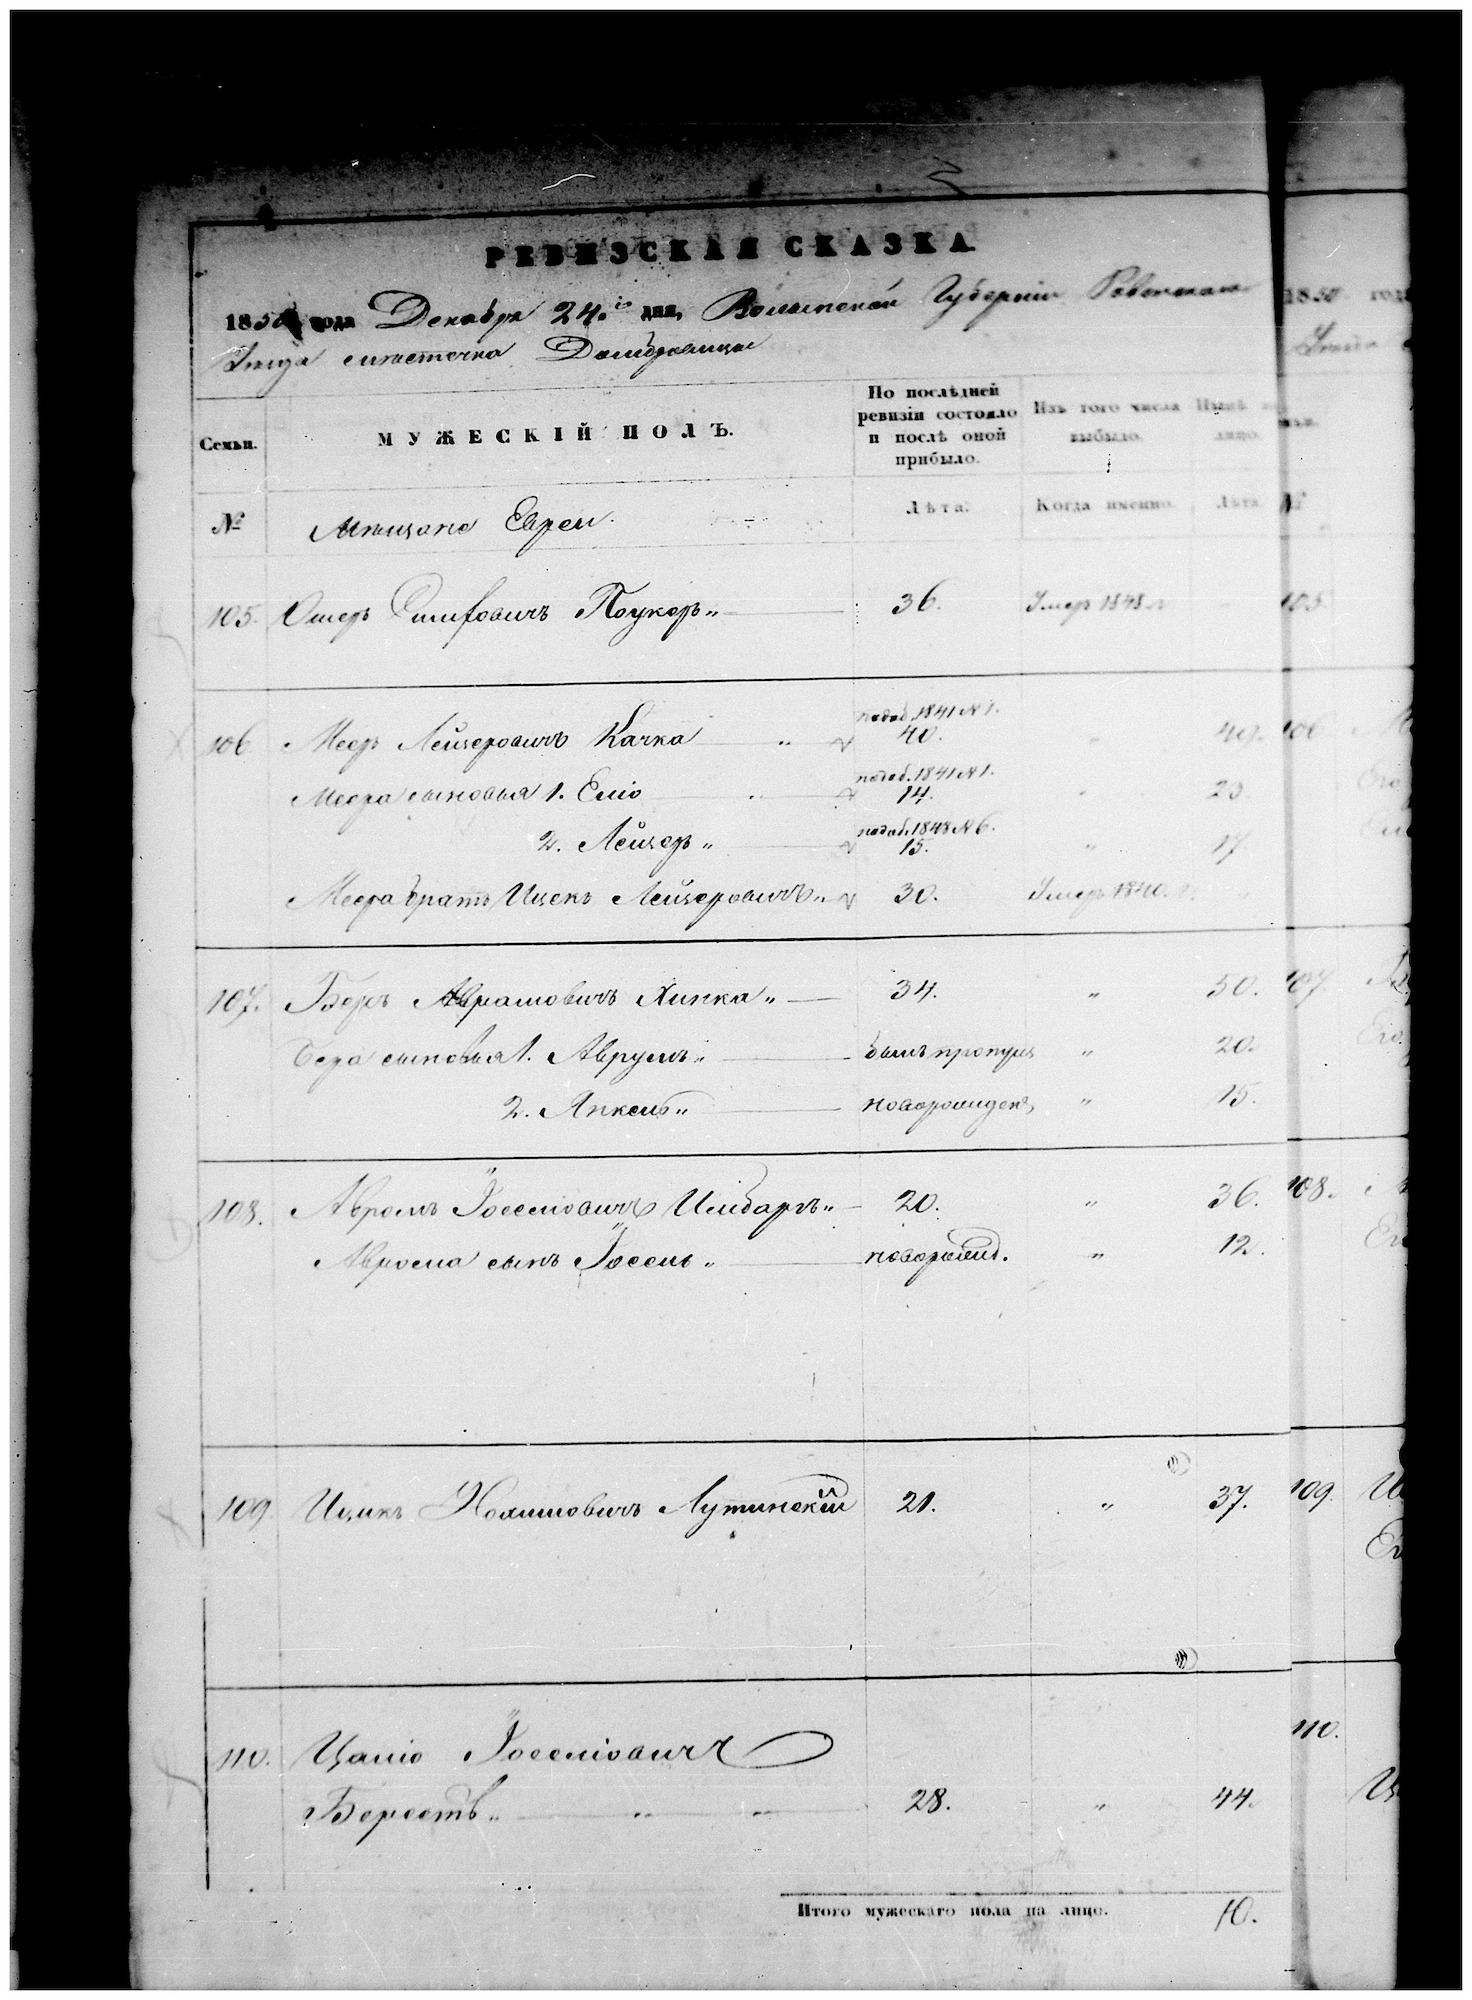 РЕВИЗСКАЯ СКАЗКА.
1850 года Декабря 24.го дня, Волынской Губернiи Ровенского
Уезда местечка Домбровица
Семьи.
МУЖЕСКІЙ ПОЛЪ.
По послѣдней ревизіи состояло и послѣ оной прибыло.
Изъ того числа выбыло.
Нынѣ на лицо.
№
Мещане Евреи.
Лѣта.
Когда именно.
Лѣта
105. Ошеръ Поукеръ„ 36. Умеръ 1848 105.
подоб. 1841 № 1.
106 Меер Лейзеровичъ Качка „ 40. „ 49. 106
подоб. 1841 № 1.
Меера сыновья 1. Елiо „ 14. „ 23.
подоб. 1848 № 6.
2. Лейзеръ „ 15. „ 17
Меера братъ Ицекъ Лейзеровичъ„ 30. Умеръ 1840.
107. Беръ Аврамовичъ Хинка„ 34. „ 50. 107.
Бера сыновья 1. Аврумъ„ былъ пропущ „ 20.
2. Янкель„ новорожден, „ 15.
108. Авромъ Іоселіовичъ Имбаръ„ 20. „ 36. 108.
Аврома сынъ Іосель„ новорожд. „ 12.
109. Ицикъ Лутинскій 21. „ 37. 109.
110. Цаліо Іоселіовичъ 110.
Берестъ„ „ „ 28. „ 44.
Итого мужескаго пола на лицо. 10.